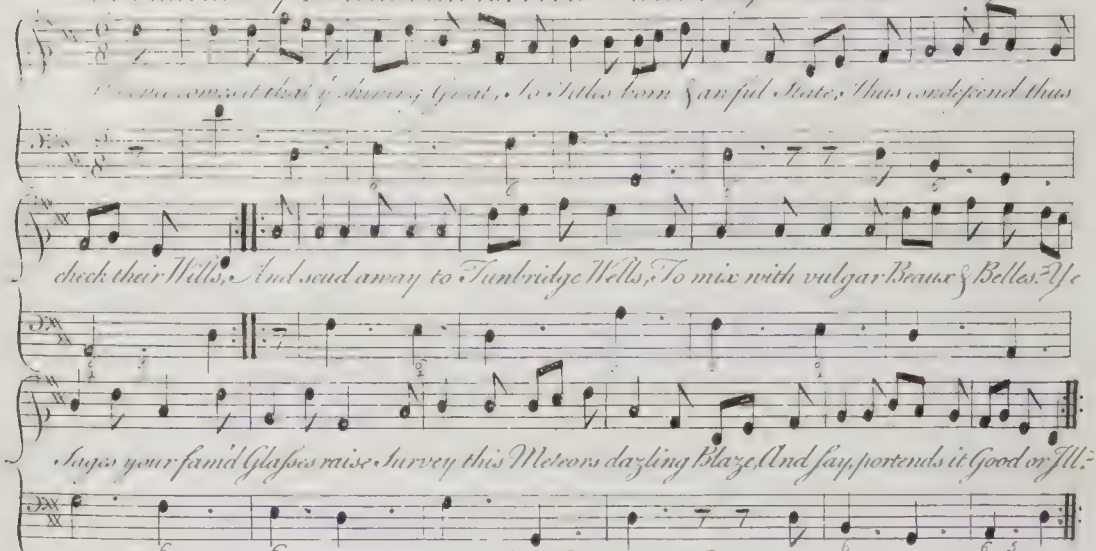 that yͤ shining Great, To Titles born & awful State, Thus condescend thus
check their Wills, And scud away to Tunbridge Wells, To mix with vulgar Beaux & Belles? Ye
Sages your fam'd Glaſses raise Survey this Meteors dazling Blaze, And say, portends it Good or Ill?